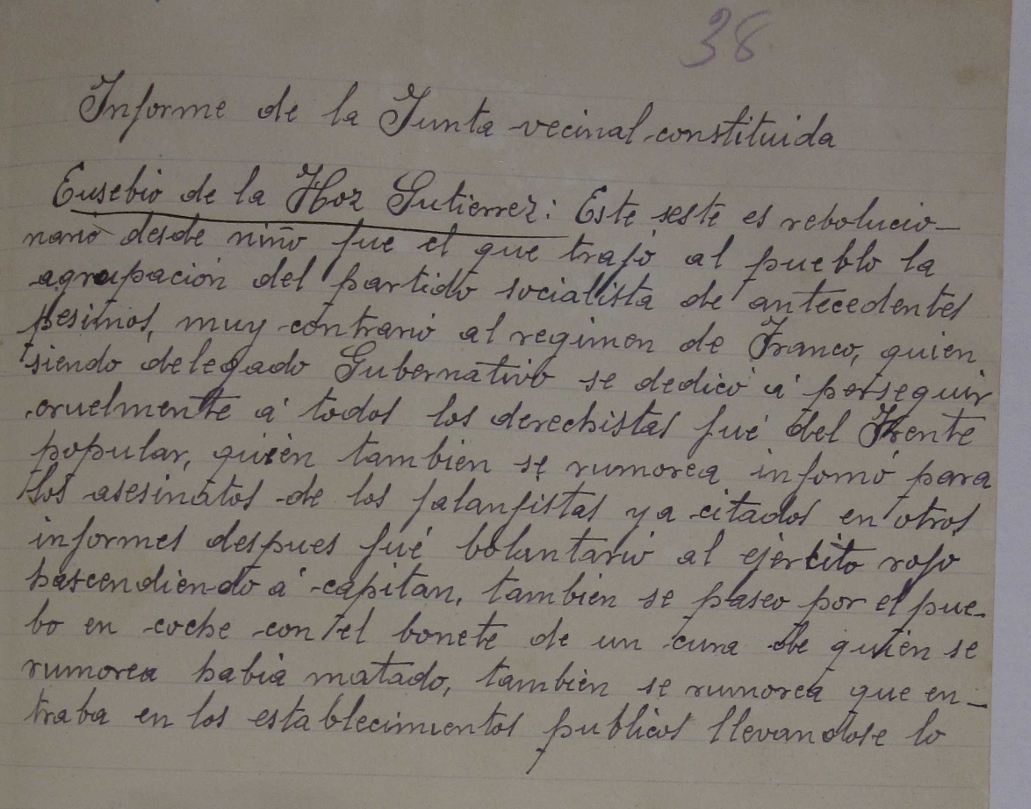 38
Informe de la Junta vecinal constituida
Eusebio de la Hoz Gutierrez: Este seste es rebolucio-
nario desde niño fue el que trajo al pueblo la
agrupación del partido socialista de antecedentes
pesimos, muy contrario al regimen de Franco, quien
siendo delegado Gubernativo se dedicó á perseguir
cruelmente á todos los derechistas fué del Frente
popular, quien tambien se rumorea infomó para
los asesinatos de los falangistas ya citados en otros
informes despues fué boluntario al ejército rojo
hascendiendo á capitan, tambien se paseo por el pue-
bo en coche con el bonete de un cura de quien se
rumorea habia matado, tambien se rumorea que en-
traba en los establecimientos publicos llevandose lo